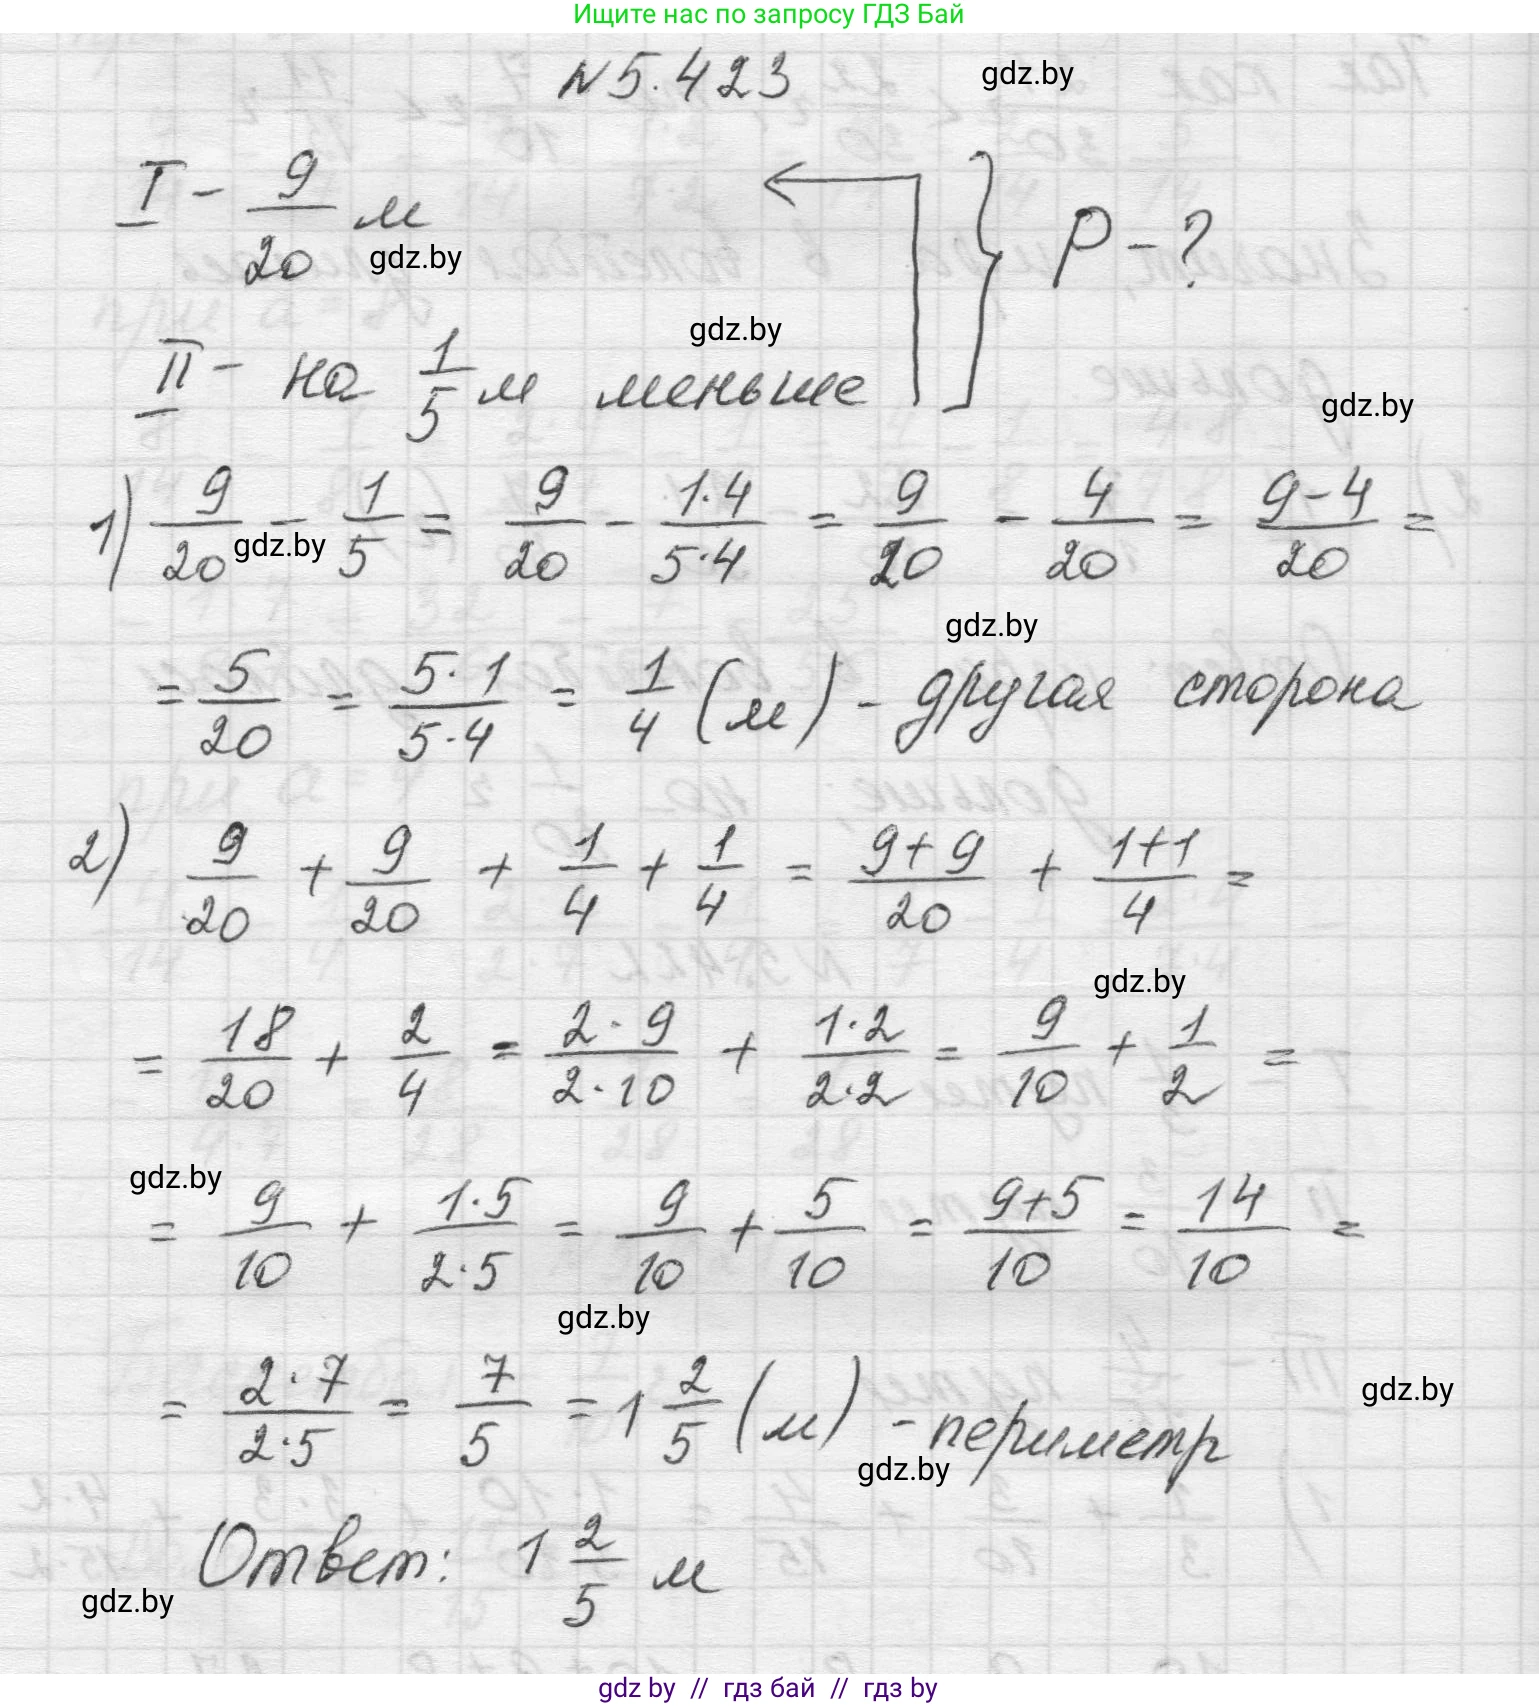 Ищите нас по запросу ГДЗ Бай
N5.423
gdz.by
I - 9/20 м
P - ?
gdz.by
gdz.by
II - на 1/5 м меньше
gdz.by
1) 9/20 - 1/5 = 9/20 - 1·4/5·4 = 9/20 - 4/20 = 9-4/20 =
gdz.by
gdz.by
= 5/20 = 5·1/5·4 = 1/4 (м) - другая сторона
2) 9/20 + 9/20 + 1/4 + 1/4 = 9+9/20 + 1+1/4 =
gdz.by
= 18/20 + 2/4 = 2·9/2·10 + 1·2/2·2 = 9/10 + 1/2 =
gdz.by
= 9/10 + 1·5/2·5 = 9/10 + 5/10 = 9+5/10 = 14/10 =
gdz.by
= 2·7/2·5 = 7/5 = 1 2/5 (м) - периметр
gdz.by
gdz.by
Ответ: 1 2/5 м
gdz.by
gdz by // гдз бай // гдз by